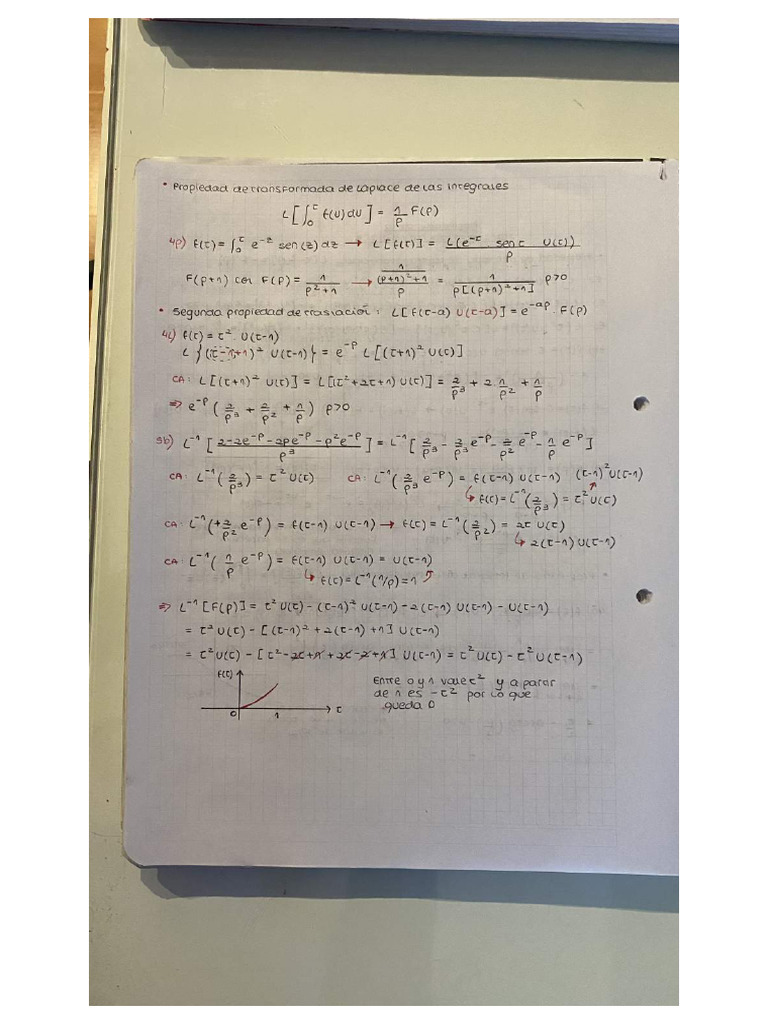 • Propiedad de transformada de Laplace de las integrales
L[∫₀ᵗ f(u)du] = 1/p F(p)
4p) f(t) = ∫₀ᵗ e^-z sen(z) dz → L[f(t)] = L(e^-t sen t U(t))/p
F(p+1) con F(p) = 1/(p²+1) → (1/((p+1)²+1))/p = 1/(p[(p+1)²+1]) p>0
• Segunda propiedad de traslación: L[f(t-a) U(t-a)] = e^-ap · F(p)
4L) f(t) = t² · U(t-1)
L{(t-1+1)² U(t-1)} = e^-p L[(t+1)² U(t)]
CA: L[(t+1)² U(t)] = L[(t²+2t+1) U(t)] = 2/p³ + 2·1/p² + 1/p
⇒ e^-p (2/p³ + 2/p² + 1/p) p>0
5b) L⁻¹[(2-2e^-p-2pe^-p-p²e^-p)/p³] = L⁻¹[2/p³ - 2/p³ e^-p - 2/p² e^-p - 1/p e^-p]
CA: L⁻¹(2/p³) = t² U(t) CA: L⁻¹(2/p³ e^-p) = f(t-1) U(t-1) (t-1)² U(t-1)
↳ f(t) = L⁻¹(2/p³) = t² U(t)
CA: L⁻¹(+2/p² e^-p) = f(t-1) U(t-1) → f(t) = L⁻¹(2/p²) = 2t U(t)
↳ 2(t-1) U(t-1)
CA: L⁻¹(1/p e^-p) = f(t-1) U(t-1) = U(t-1)
↳ f(t) = L⁻¹(1/p) = 1
⇒ L⁻¹[F(p)] = t² U(t) - (t-1)² U(t-1) - 2(t-1) U(t-1) - U(t-1)
= t² U(t) - [(t-1)² + 2(t-1) + 1] U(t-1)
= t² U(t) - [t² - 2t + 1 + 2t - 2 + 1] U(t-1) = t² U(t) - t² U(t-1)
f(t)
Entre 0 y 1 vale t² y a partir
de 1 es -t² por lo que
queda 0
0 1 t